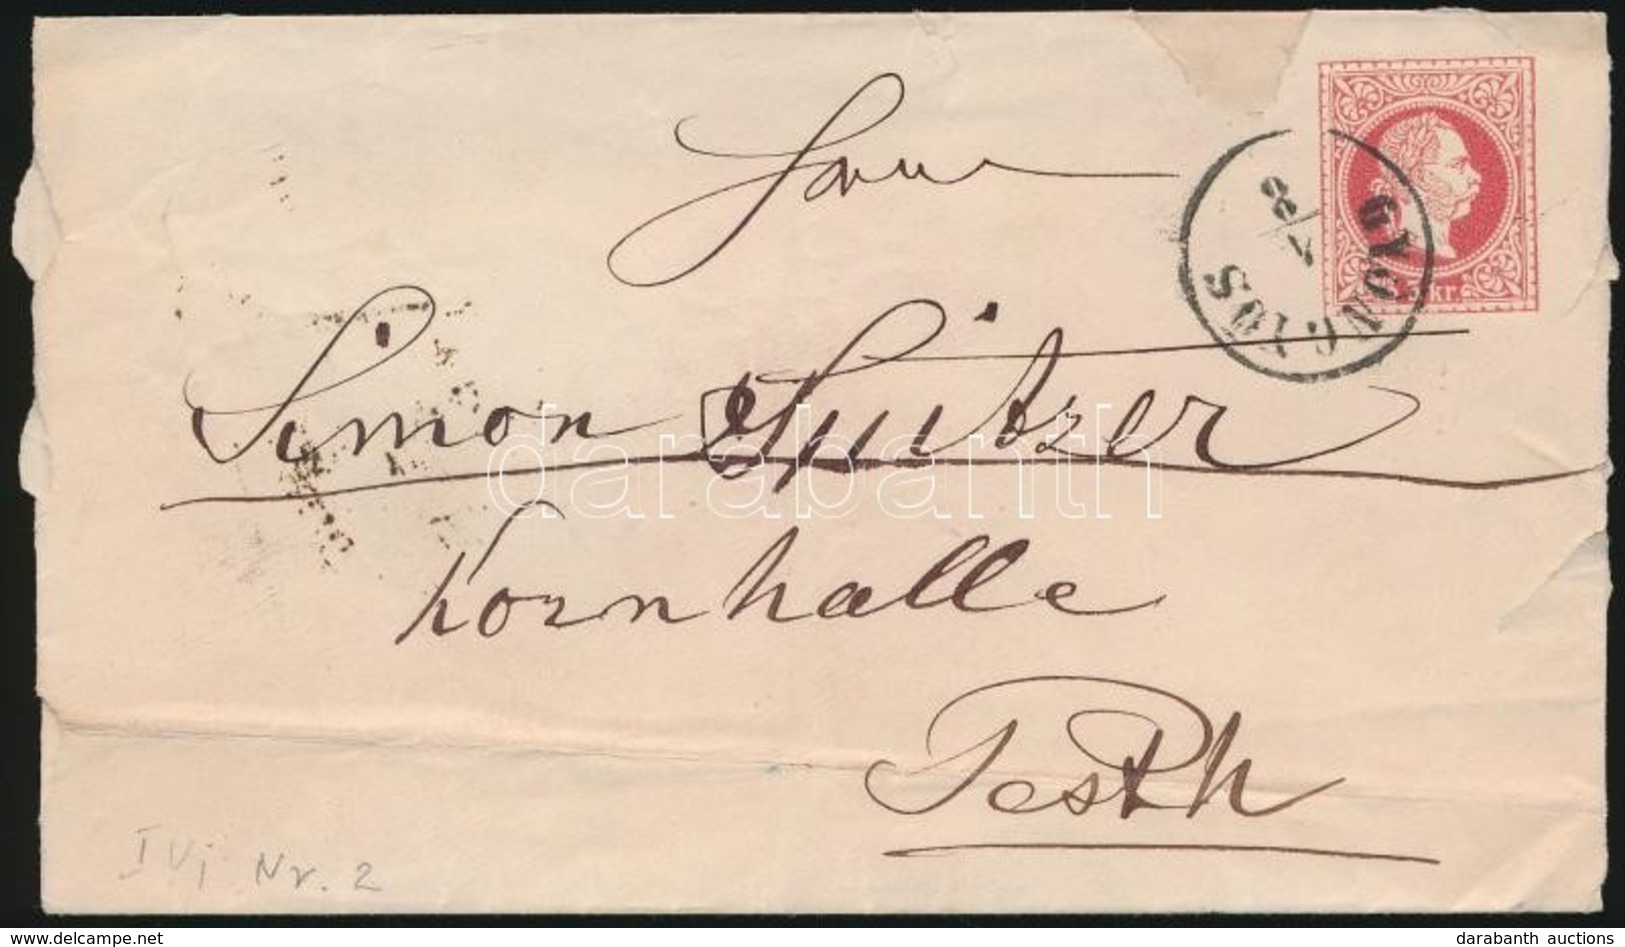 Herrn
GYÖNGYÖS
8/7
KR.
Simon Spitzer
darabanth
Kornhalle
Pesth
IVi Nr. 2
www.delcampe.net
darabanth auctions